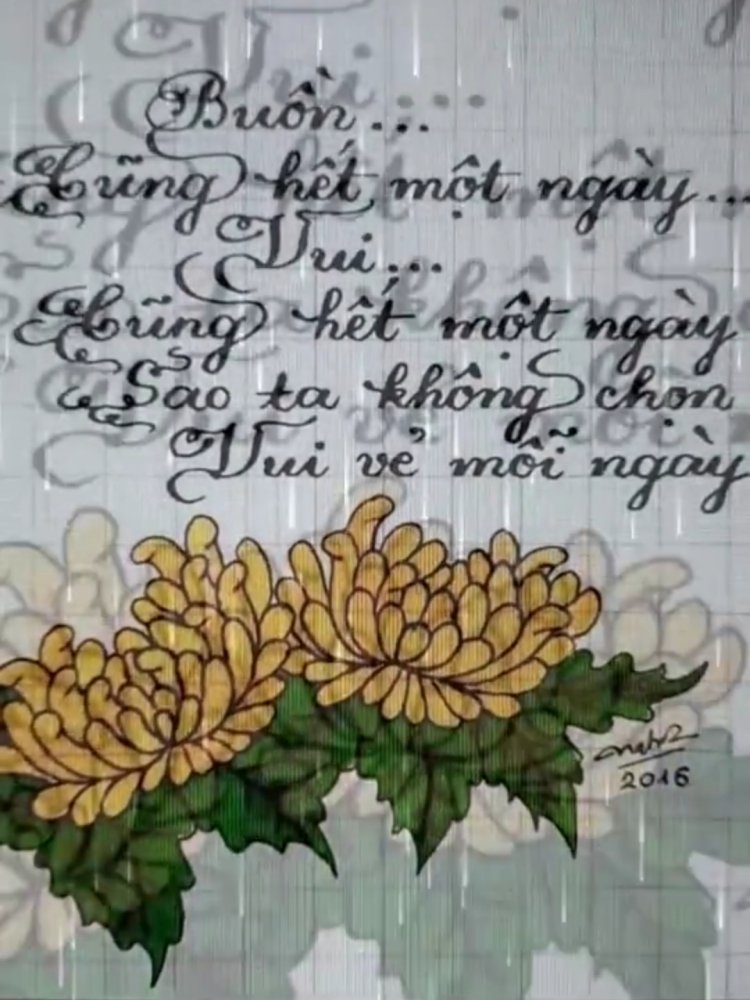 Buồn...
Cũng hết một ngày...
Vui...
Cũng hết một ngày
Sao ta không chọn
Vui vẻ mỗi ngày
2016